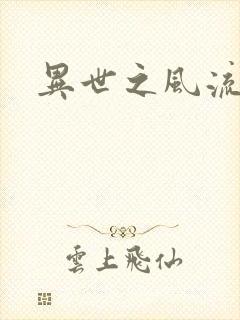 異世之風流
雲上飛仙